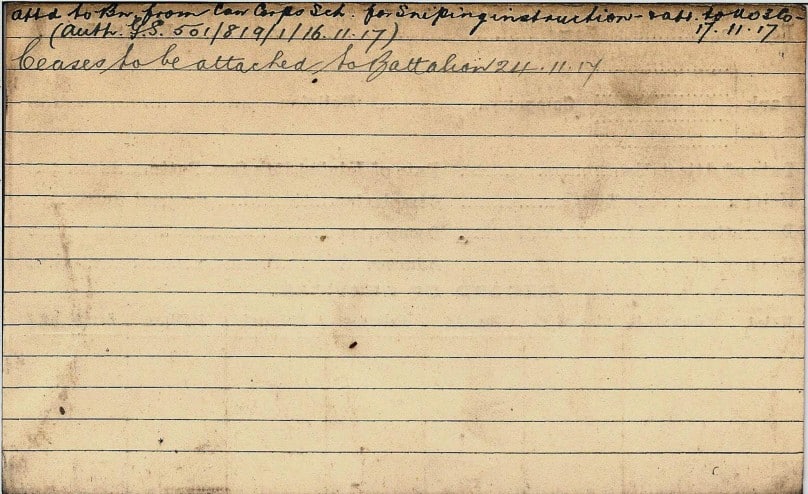 attd to Bn. from Can Corps Sch. for Sniping instruction - & att. to No 3 Co -
(Auth. G.S. 501/819/1/16.11.17) 17.11.17
Ceases to be attached to Battalion 24.11.17